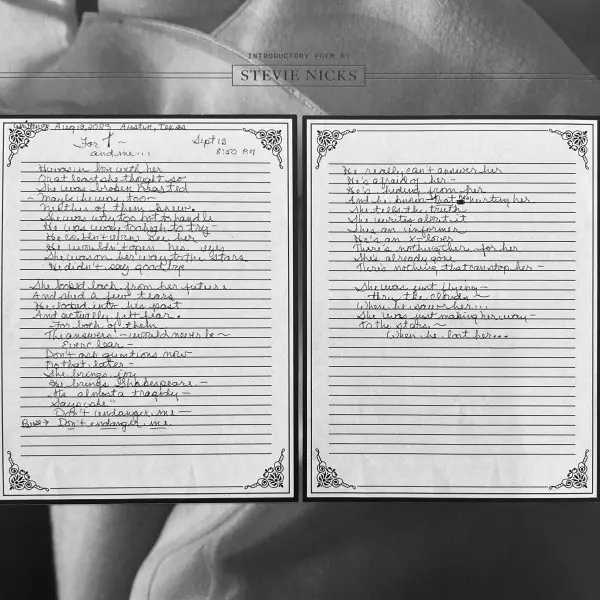 INTRODUCTORY POEM BY
STEVIE NICKS
Aug 13, 2023 Austin, Texas
For T ~
and me...
Sept 13
8:50 PM
He was in love with her
Or at least she thought so
She was broken hearted
~ Maybe he was too ~
Neither of them knew.
She was way too hot to handle
He was way too high to try -
He couldn't even see her
He wouldn't open his eyes
She was on her way to the stars
He didn't say goodbye
She looked back from her future
And shed a few tears
He looked into his past
And actually felt fear.
For both of them
The answers - would never be ~
Ever clear -
Don't ask questions now
Do that later -
She brings joy
He brings Shakespeare -
It's almost a tragedy -
Says she"
Don't endanger me —
→ Don't endanger me.
He really can't answer her
He's afraid of her -
He's hiding from her
And he knows that he's hurting her
She tells the truth
She writes about it
She's an informer
He's an x-lover
There's nothing there for her
She's already gone
There's nothing that can stop her -
She was just flying -
thru the clouds ~
When he saw her...
She was just making her way -
To the stars ~
When he lost her...